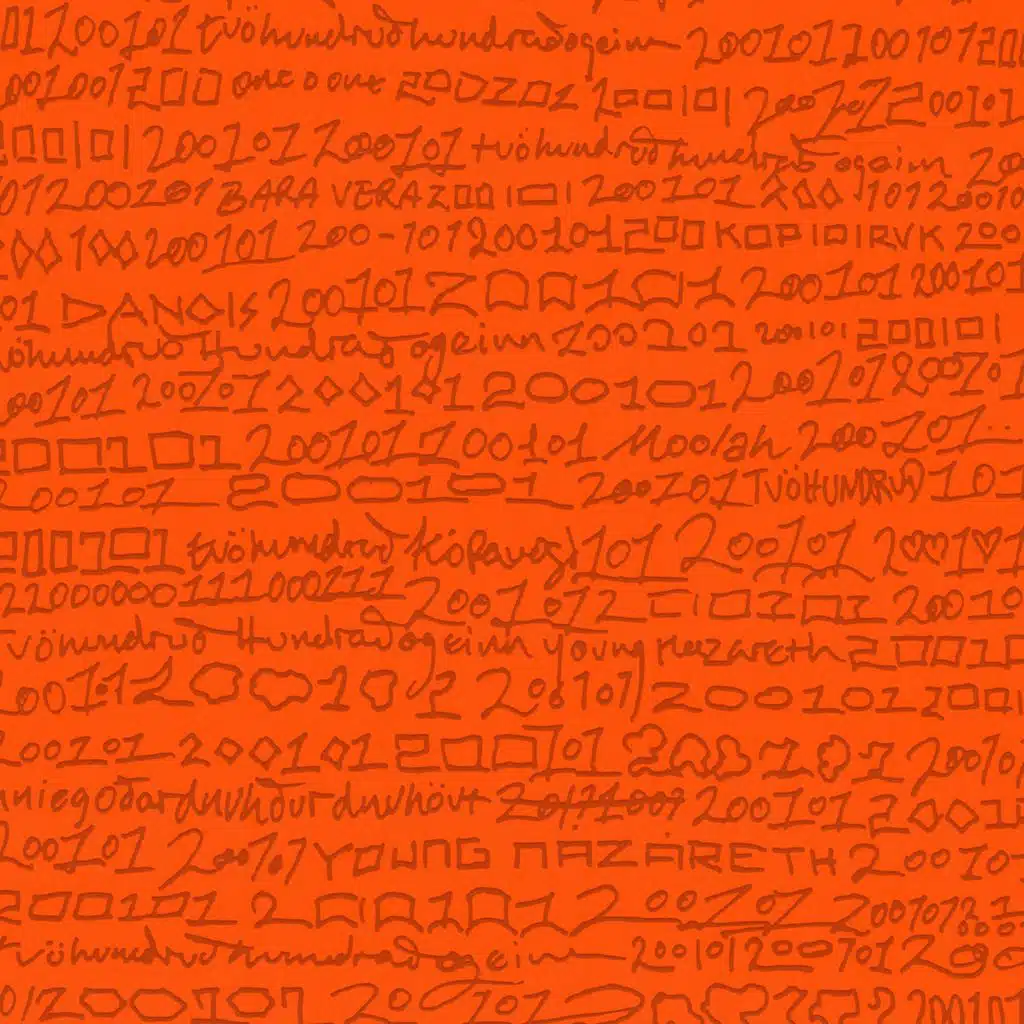 01200101 tvöhundruðhundraðogeinn 20010110010120
001001200 one o one 200201 200101 200101200101
200101 200101 200101 tvöhundruð hundrað ogeinn 20
101200201 BARA VERA 200101 200101 200 10120010
00100200101 200-101200101200 KOP101RVK 200
01 DANGIS 200101 200101 200101 200101
hundruð Hundrað ogeinn 200101 200101 200101
200101 200101 200101 200101 200101 200101
200101 200101100101 Moolah 200201..
200101 200101 200201 TVÖHUNDRUÐ 101
200101 tvöhundruð Kópavogi 101 200101 200101
22000000111000111 200101 200101 20010
Tvöhundruð Hundraðogeinn young nazareth 20010
200101 200101 200101 200101 200
200101 200101 200101 200101 200101
200101 200101 2001
200101 200101 YOUNG NAZARETH 200101
200101 200101 200101 200101
tvöhundruð Hundrað ogeinn 200101 200101 200
01 200101 200101 200101 200101